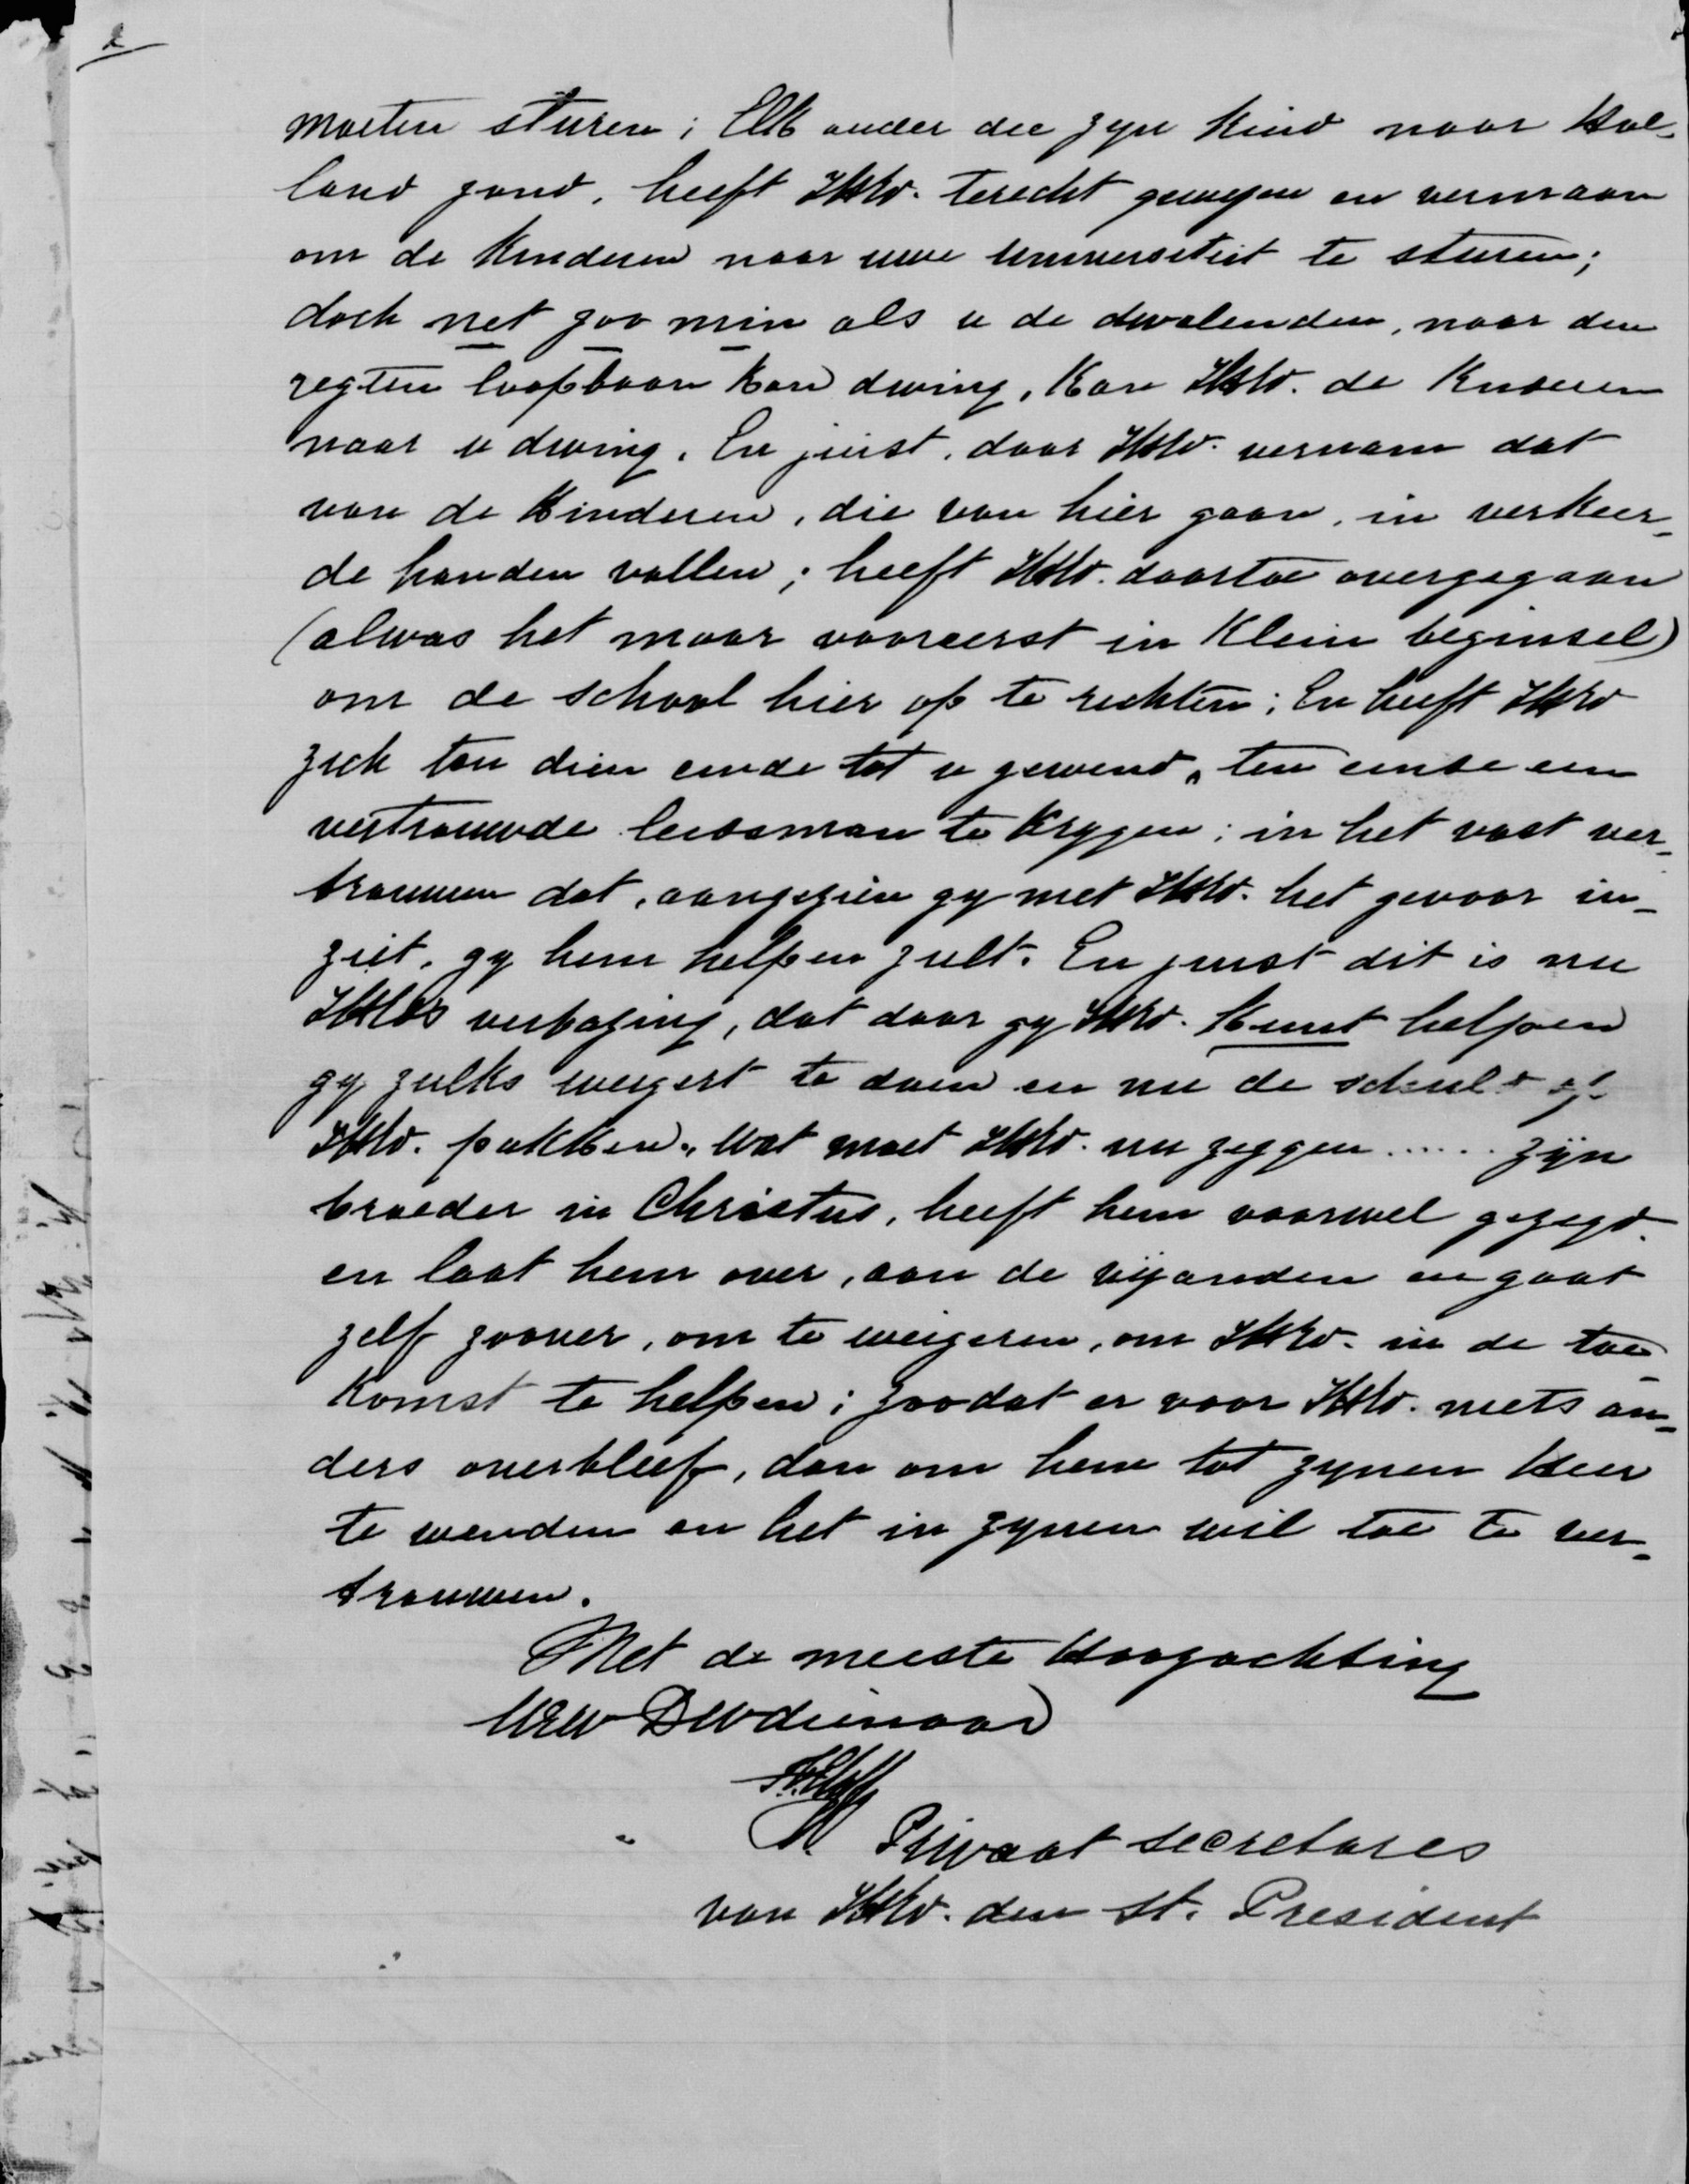 2
moeten sturen; Elk ouder die zyn kind naar Hol-
land zond, heeft ZHEd. terecht gewezen en vermaan
om de kinderen naar uwe Universiteit te sturen;
doch net zoo min als u de dwalenden, naar den
regten loopbaan kan dwing, kan ZHEd. de kinderen
naar u dwing. En juist, daar ZHEd. vernam dat
van de kinderen, die van hier gaan, in verkeer-
de handen vallen; heeft ZHEd. daartoe overgegaan
(alwas het maar vooreerst in klein beginsel)
om de school hier op te richten; En heeft ZHEd
zich ten dien einde tot u gewend, ten einde een
vertrouwde leidsman te krygen; in het vast ver-
trouwen dat, aangezien gy met ZHEd. het gevaar in-
ziet, gy hem helpen zult. En juist dit is nu
ZHEds verbazing, dat daar gy ZHEd. kunt helpen
gy zulks weigert te doen en nu de schuld op
ZHEd. pakken. Wat moet ZHEd. nu zeggen ...... zijn
broeder in Christus, heeft hem vaarwel gezegd.
en laat hem over, aan de vijanden en gaat
zelf zoover, om te weigeren, om ZHEd. in de toe-
komst te helpen; zoodat er voor ZHEd. niets an-
ders overbleef, dan om hem tot zynen Heer
te wenden en het in zynen wil toe te ver-
trouwen.
Met de meeste Hoogachting
UEw Dwdienaar
Privaat secretares
van ZHEd. den St. President